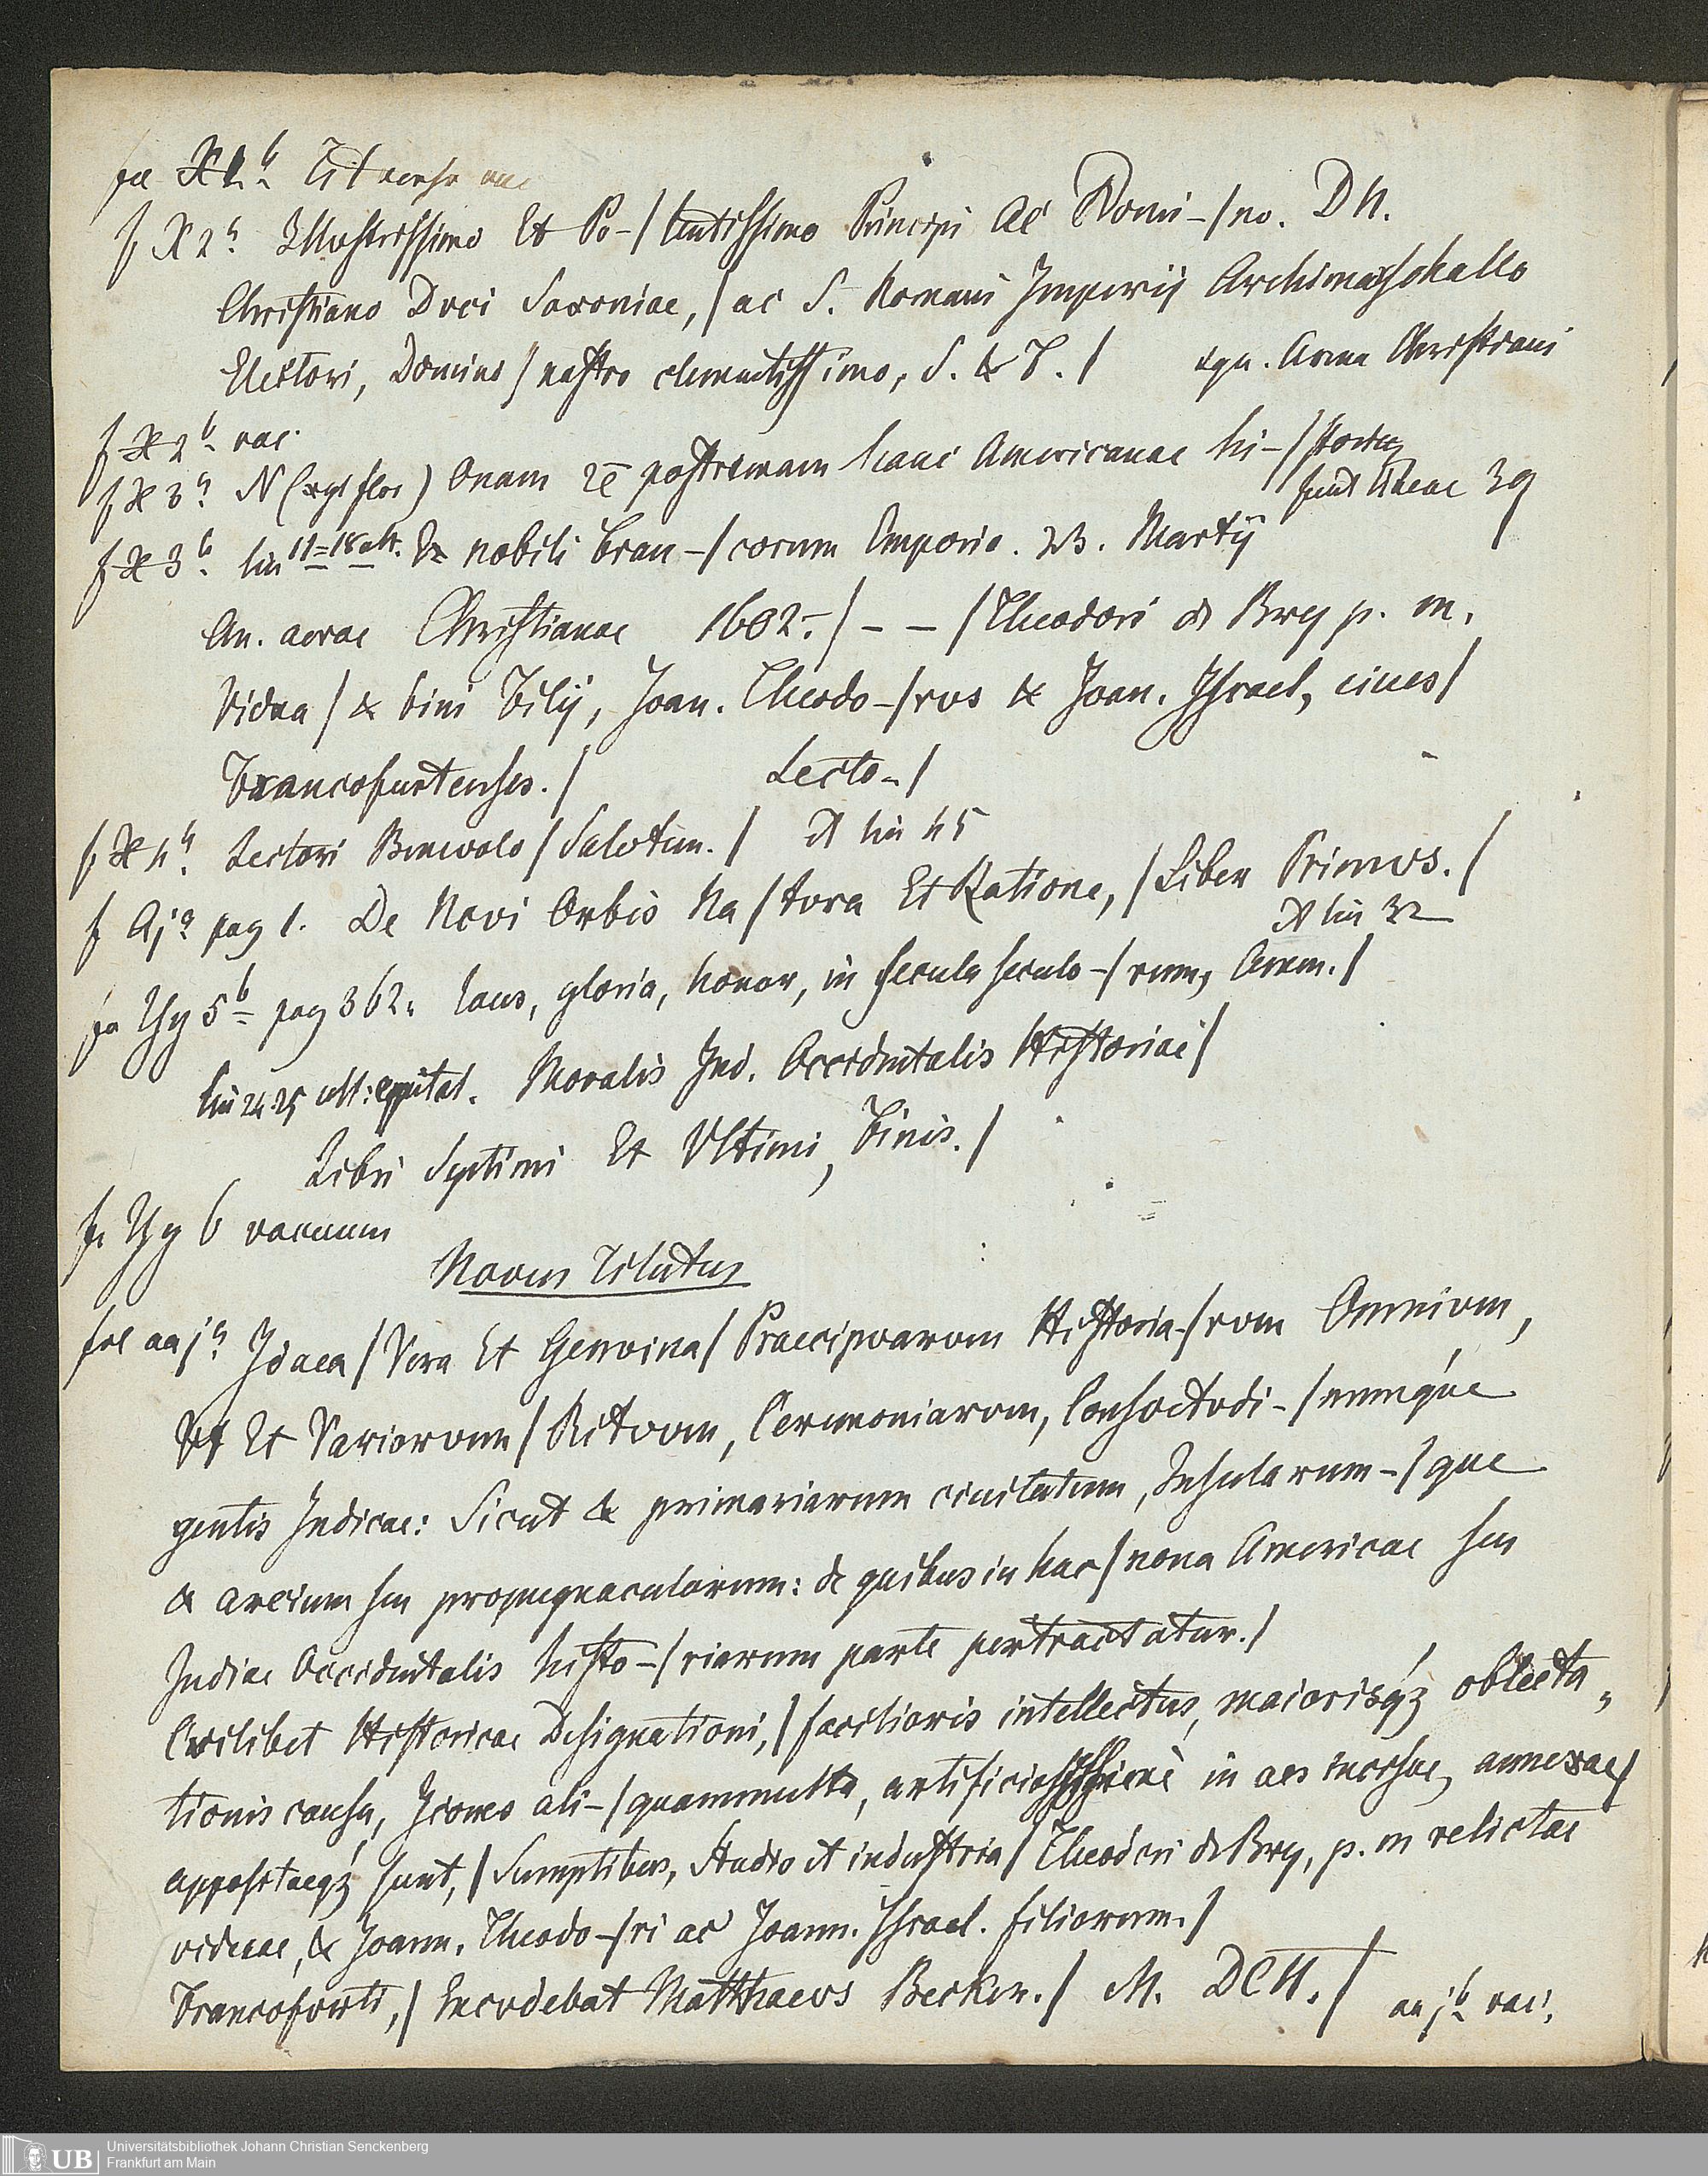 fol X1b Tit versr vac
f X2a Illustrissimo Et Po-/tentissimo Principi Ac Domi-/no. DN.
Christiano Duci Saxoniae, / ac S. Romani Imperij Archimarschallo
Electori, Domino / nostro clementissimo, S. & F. / xgr. Arma Christiani
f X2b vac.
f X3a N (xgr flor) Onam postremam hanc Americanae hi-/storiae
sunt lineae 39
f X3b lin 11=18 ult. Ex nobili Fran-/corum Emporio. 23. Martij
An. aerae Christianae 1602. / – – / Theodori de Bry p. m.
Vidua / & bini Filij, Joan. Theodo-/rus & Joan. Israel, ciues /
Francofurtenses. / Lecto-/
f X4a Lectori Benevolo / Salutem. / et lin 45
f Aja pag 1. De Novi Orbis Na/tura Et Ratione, / Liber Primus. /
et lin 32
fo Yy5b pag 362. laus, gloria, honor, in secula seculo-/rum, Amen. /
lin 24.25 ult: Moralis Ind. Occidentalis Historiae /
Libri Septimi Et Ultimi, Finis. /
f. Yy 6 vacuum
Novus Titulus
fol aaja Idaea / Vera Et Genvina / Praecipvarvm Historia-/rvm Omnivm,
Vt Et Variorvm / Ritvvm, Ceremoniarvm, Consvetvdi-/numqúe
gentis Indicae: Sicut & primariarum ciuitatum, Insularum-/que
& arcium seu propugnaculorum: de quibus in hac / nona Americae seu
Indiae Occidentalis histo-/riarum parte pertractatur. /
Cvilibet Historicae Designationi, / facilioris intellectus, maiorisq́ʒ oblecta„
tionis causa, Icones ali-/quammultae, artificiosissimè in aes incisae, annexae /
appositaeq́ʒ sunt, / Sumptibus, studio et industria / Theodori de Bry, p. m relictae
viduae, & Joann. Theodo-/ri ac Joann. Israel. filiorum. /
Francofvrti, / Excvdebat Matthaevs Becker. / M. DCII. / aa jb vac.
Universitätsbibliothek Johann Christian Senckenberg
UB
Frankfurt am Main